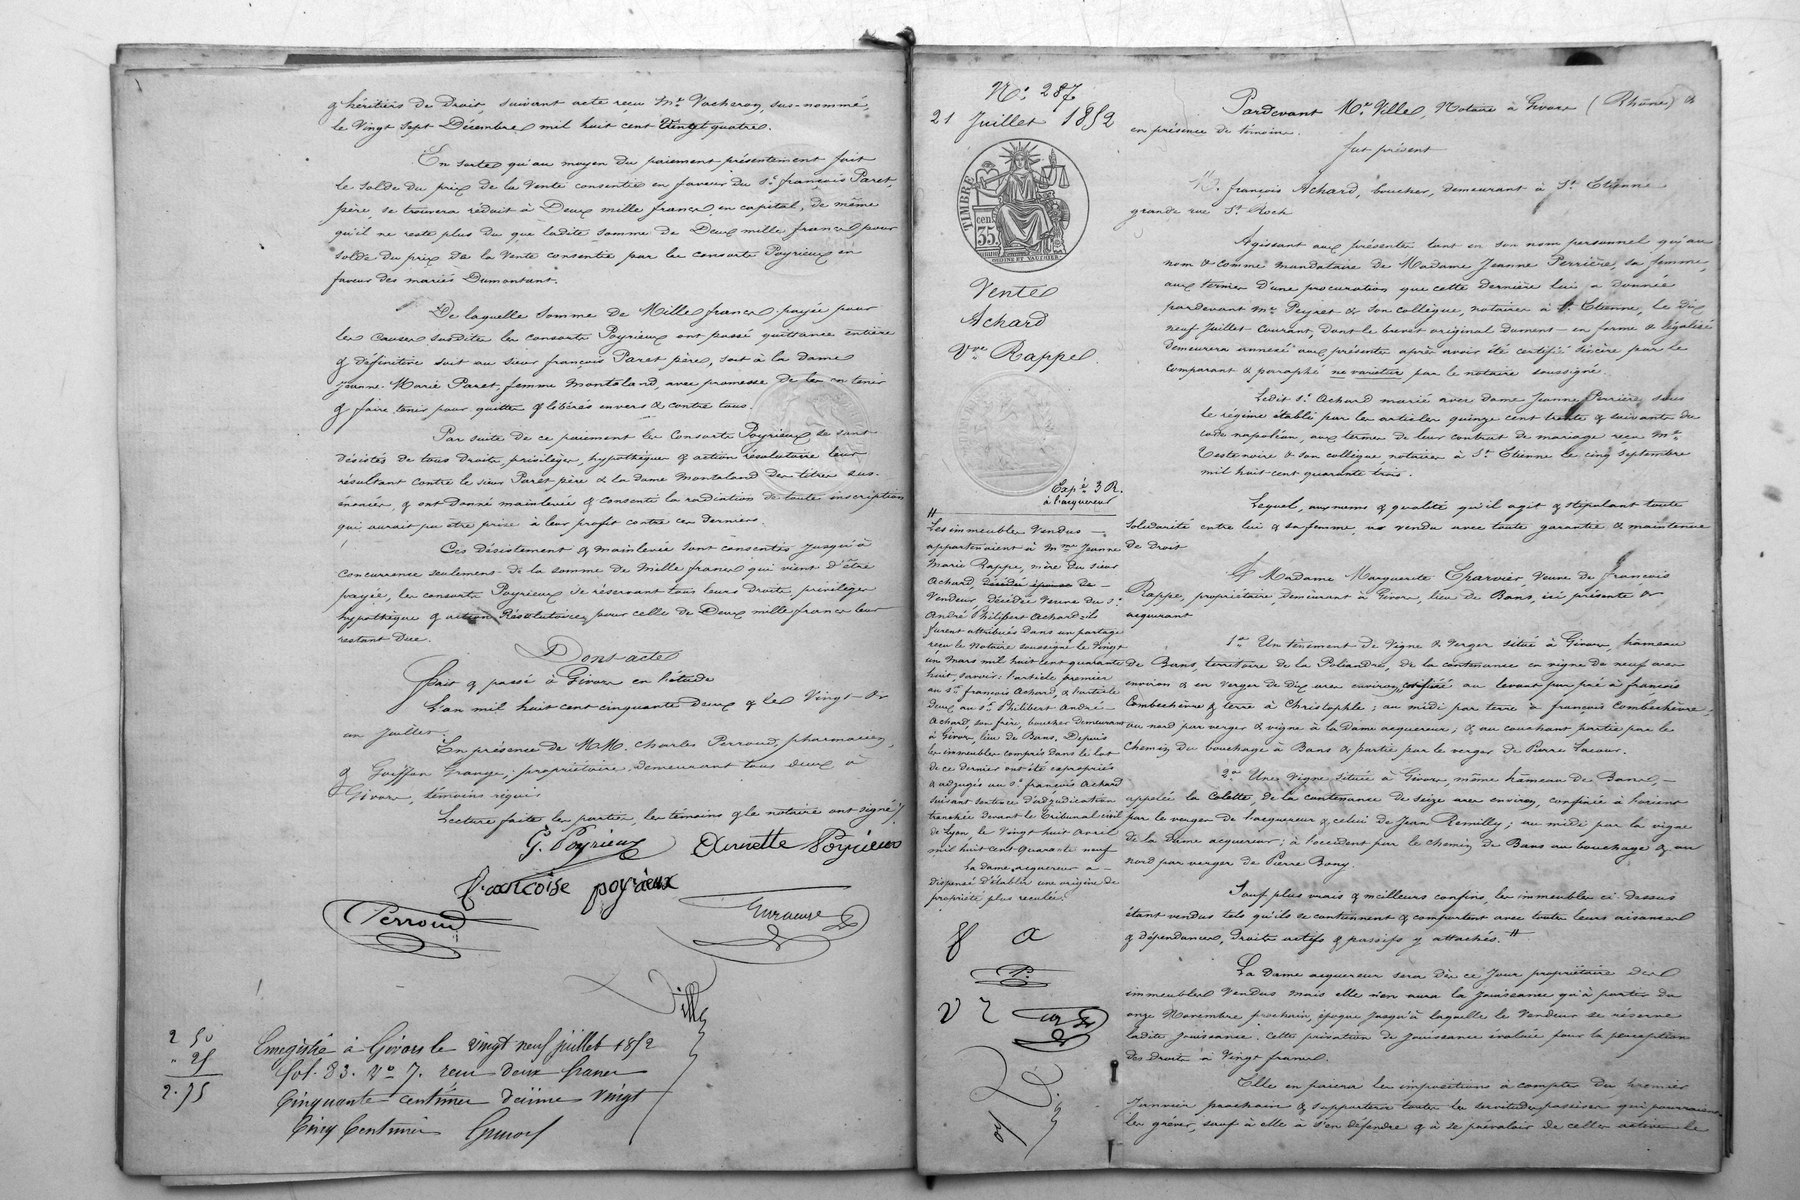 & héritiers de Droit, suivant acte reçu Me Vacheron, sus-nommé,
le Vingt Sept Décembre mil huit cent Vingt quatre.
En sorte qu'au moyen du paiement présentement fait
le solde du prix de la Vente consentie en faveur du Sr. françois Paret,
père, se trouvera réduit à Deux mille francs en capital, de même
qu'il ne reste plus du que ladite somme de Deux mille francs pour
solde du prix de la Vente consentie par les consorts Poyrieux en
faveur des mariés Dumontant.
De laquelle somme de Mille francs payée pour
les causes susdites les consorts Poyrieux ont passé quittance entière
& définitive soit au sieur françois Paret père, soit à la Dame
Jeanne Marie Paret, femme Montaland, avec promesse de les en tenir
& faire tenir pour quittes & libérés envers & contre tous.
Par suite de ce paiement les Consorts Poyrieux se sont
désistés de tous droits, privilèges, hypothèques & action résolutoire leur
résultant contre le sieur Paret père & la dame Montaland des titres sus-
énoncés, & ont donné mainlevée & consenti la radiation de toutes inscriptions
qui aurait pu être prise à leur profit contre ces derniers.
Ces désistement & mainlevée sont consentis jusqu'à
concurrence seulement de la somme de Mille francs qui vient d'être
payée, les consorts Poyrieux se réservant tous leurs droits, privilèges
hypothèques & action Résolutoires, pour celle de Deux mille francs leur
restant Due.
Dont acte
fait & passé à Givors en l'étude
L'an mil huit cent cinquante Deux & le Vingt &
un juillet.
En présence de M.M. Charles Perroud, pharmacien,
& Goiffon Grange, propriétaire, demeurant tous deux à
Givors, témoins requis
Lecture faite les parties, les témoins & le notaire ont signé
G. Poyrieux
Poyrieux
francoise poyrieux
Perroud
Ville
2 50
" 25
2.75
Enregistré à Givors le vingt neuf juillet 1852
fol. 83. Vo 7. reçu deux francs
Cinquante centimes décime vingt
Cinq Centimes
No. 287
21 Juillet 1852
TIMBRE
cent
35
Vente
Achard
Vve Rappe
Expé 3 R.
à l'acquereur
#
Les immeubles Vendus
appartenaient à Mme Jeanne
Marie Rappe, mère du sieur
Achard décédée épouse de
Vendeur, Décédée Veuve du Sr.
André Philibert Achard : ils
furent attribués dans un partage
reçu le Notaire soussigné le Vingt
un Mars mil huit cent quarante
huit, savoir : l'article premier
au Sr. françois Achard, & l'article
deux au Sr. Philibert André
Achard, son frère, boucher demeurant
à Givors, lieu de Bans. Depuis
les immeubles compris dans le lot
de ce dernier ont été expropriés
& adjugés au Sr. françois Achard
suivant sentence d'adjudication
tranchée devant le Tribunal civil
de Lyon, le Vingt huit avril
mil huit cent quarante neuf
La dame acquereur a
dispensé d'établir une origine de
propriété plus reculée.
f a
P.
Pardevant Me Ville, Notaire à Givors (Rhône) &
en présence de témoins.
fut présent
M. françois Achard, boucher, demeurant à St. Etienne
grande rue St. Roch
Agissant aux présentes tant en son nom personnel qu'au
nom & comme mandataire de Madame Jeanne Perrière, sa femme,
aux termes d'une procuration que cette dernière lui a donnée
pardevant Me Peyret & son collègue, notaires à St. Etienne, le dix
neuf juillet courant, dont le brevet original dument en forme & légalisé
demeurera annexé aux présentes après avoir été certifié sincère par le
comparant & paraphé ne varietur par le notaire soussigné.
Ledit Sr. Achard marié avec dame Jeanne Perrière sous
le régime établi par les articles quinze cent trente & suivants du
code napoléon, aux termes de leur contrat de mariage reçu Me
Testenoire & son collègue notaires à St. Etienne le cinq Septembre
mil huit cent quarante trois.
Lequel, aux noms & qualité qu'il agit & stipulant toute
solidarité entre lui & sa femme, a vendu avec toute garantie & maintenue
de Droit
à Madame Marguerite Charvier, Veuve de françois
Rappe, propriétaire, demeurant à Givors, lieu de Bans, ici présente &
acquerant
1o Un tènement de Vigne & Verger situé à Givors, hameau
de Bans, territoire de la Poliandre, de la contenance en vigne de neuf ares
environ & en verger de dix ares environ, confiné au levant par pré à françois
Combechèvre & terre à Christophle ; au midi par terre à françois Combechèvre ;
au nord par verger & vigne à la Dame acquereur ; & au couchant partie par le
Chemin du bouchage à Bans & partie par le verger de Pierre Lacour.
2o Une Vigne située à Givors, même hameau de Bans,
appelée la Colette, de la contenance de seize ares environ, confinée à l'orient
par le verger de l'acquereur & celui de Jean Remilly ; au midi par la vigne
de la Dame acquereur ; à l'occident par le chemin de Bans au bouchage & au
nord par verger de Pierre Bony.
Sauf plus vrais & meilleurs confins, les immeubles ci-dessus
étant vendus tels qu'ils se contiennent & comportent avec toutes leurs aisances
& dépendances, droits actifs & passifs y attachés. #
La Dame acquereur sera dès ce jour propriétaire des
immeubles Vendus mais elle n'en aura la Jouissance qu'à partir du
onze Novembre prochain, époque jusqu'à laquelle le Vendeur se réserve
ladite Jouissance. Cette privation de Jouissance évaluée pour la perception
des droits à Vingt francs.
Elle en paiera les impositions à compter du premier
Janvier prochain & supportera toutes les servitudes passives qui pourraient
les gréver, sauf à elle à s'en défendre & à se prévaloir de celles actives le